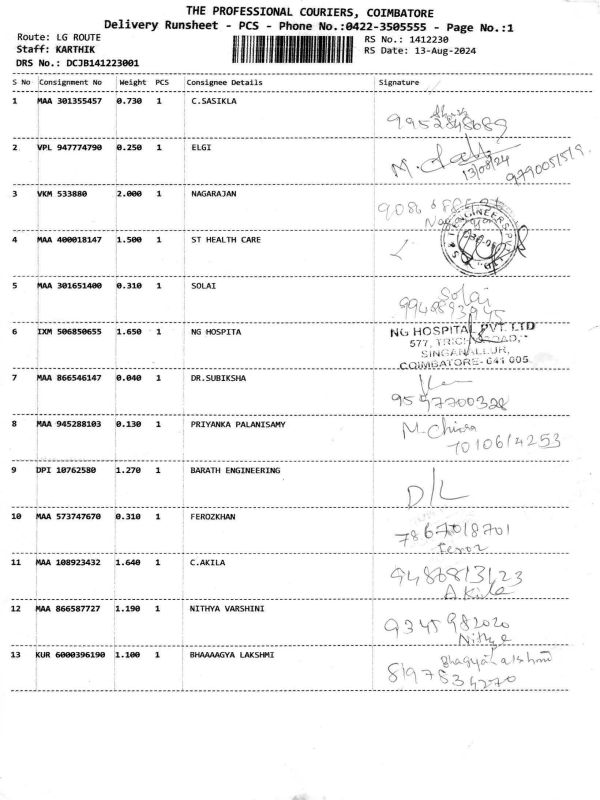 THE PROFESSIONAL COURIERS, COIMBATORE
Delivery Runsheet - PCS - Phone No.:0422-3505555 - Page No.:1
Route: LG ROUTE RS No.: 1412230
Staff: KARTHIK RS Date: 13-Aug-2024
DRS No.: DCJB141223001
S No Consignment No Weight PCS Consignee Details Signature
1 MAA 301355457 0.730 1 C.SASIKLA
2 VPL 947774790 0.250 1 ELGI
13/08/24
3 VKM 533880 2.000 1 NAGARAJAN
4 MAA 400018147 1.500 1 ST HEALTH CARE
5 MAA 301651400 0.310 1 SOLAI
Solai
6 IXM 506850655 1.650 1 NG HOSPITA
NG HOSPITAL PVT LTD
577,
SINGANALLUR,
COIMBATORE- 641 005
7 MAA 866546147 0.040 1 DR.SUBIKSHA
9597700328
8 MAA 945288103 0.130 1 PRIYANKA PALANISAMY
7010614253
9 DPI 10762580 1.270 1 BARATH ENGINEERING
D/L
10 MAA 573747670 0.310 1 FEROZKHAN
7867018701
Feroz
11 MAA 108923432 1.640 1 C.AKILA
Akila
12 MAA 866587727 1.190 1 NITHYA VARSHINI
9345982020
13 KUR 6000396190 1.100 1 BHAAAAGYA LAKSHMI
8197534270